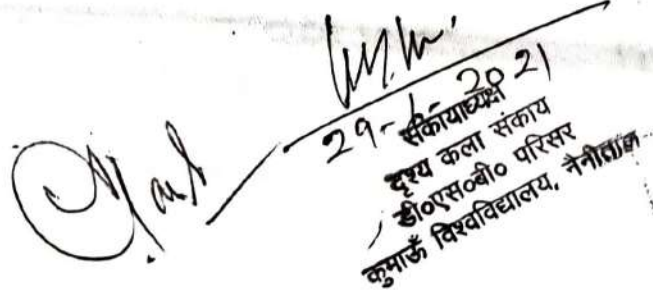 29-1-2021
संकायाध्यक्ष
दृश्य कला संकाय
डी०एस०बी० परिसर
कुमाऊँ विश्वविद्यालय, नैनीताल